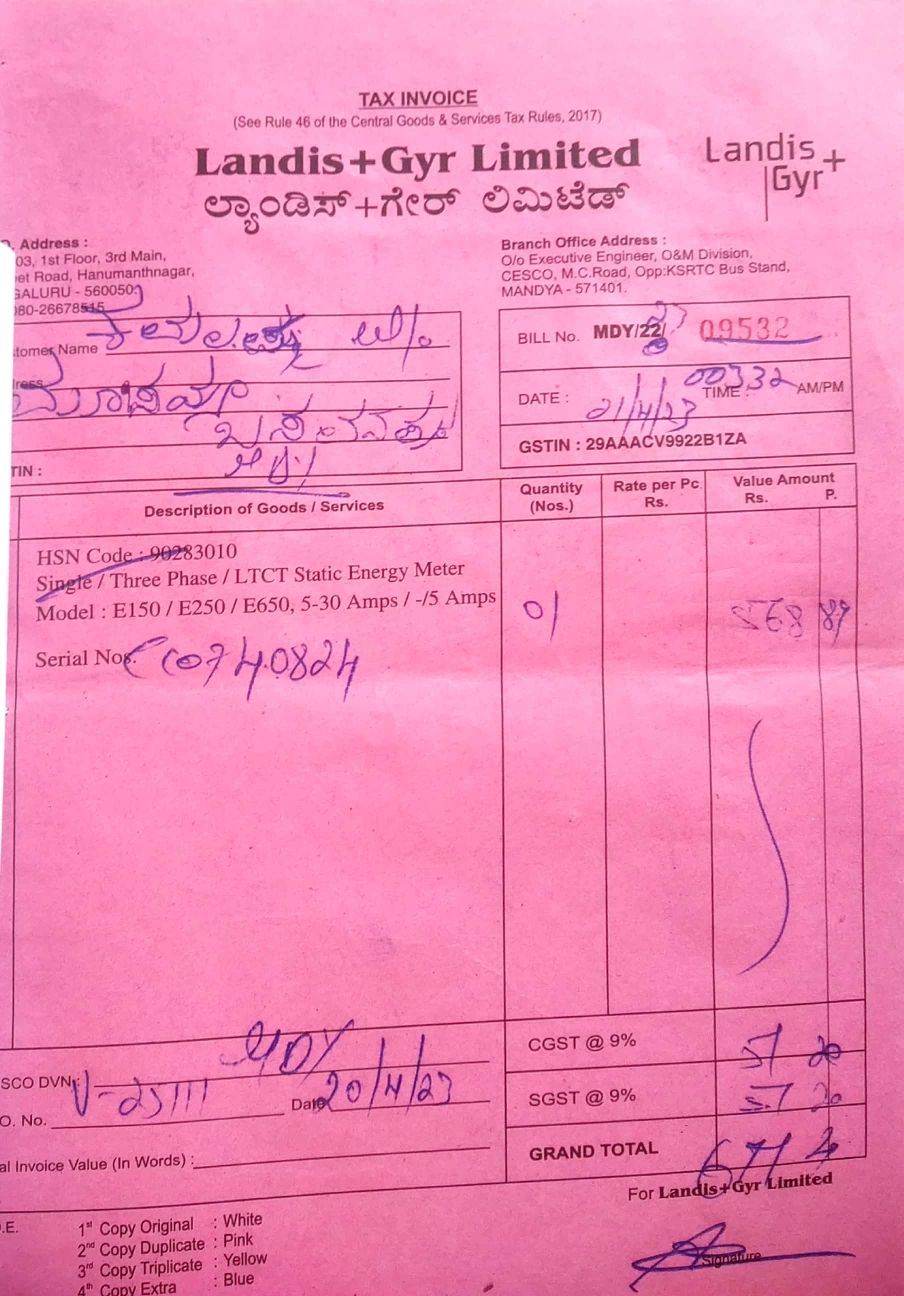 TAX INVOICE
(See Rule 46 of the Central Goods & Services Tax Rules, 2017)
Landis+Gyr Limited
ಲ್ಯಾಂಡಿಸ್+ಗೇರ್ ಲಿಮಿಟೆಡ್
Landis
Gyr+
Address :
03, 1st Floor, 3rd Main,
et Road, Hanumanthnagar,
GALURU - 560050
080-26678515
Branch Office Address :
O/o Executive Engineer, O&M Division,
CESCO, M.C.Road, Opp:KSRTC Bus Stand,
MANDYA - 571401.
tomer Name
ress
TIN :
BILL No. MDY/22/ 23 09532
DATE : 21/4/23 TIME : AM/PM
00332
GSTIN : 29AAACV9922B1ZA
Description of Goods / Services
Quantity (Nos.)
Rate per Pc. Rs.
Value Amount Rs. P.
HSN Code : 90283010
Single / Three Phase / LTCT Static Energy Meter
Model : E150 / E250 / E650, 5-30 Amps / -/5 Amps 01 568 89
Serial Nos. 0740824
CGST @ 9% 51 20
SGST @ 9% 51 20
GRAND TOTAL 671
SCO DVN. : MDY
O. No. Date 20/4/23
al Invoice Value (In Words) :
For Landis+Gyr Limited
Signature
O.E.
1st Copy Original : White
2nd Copy Duplicate : Pink
3rd Copy Triplicate : Yellow
4th Copy Extra : Blue